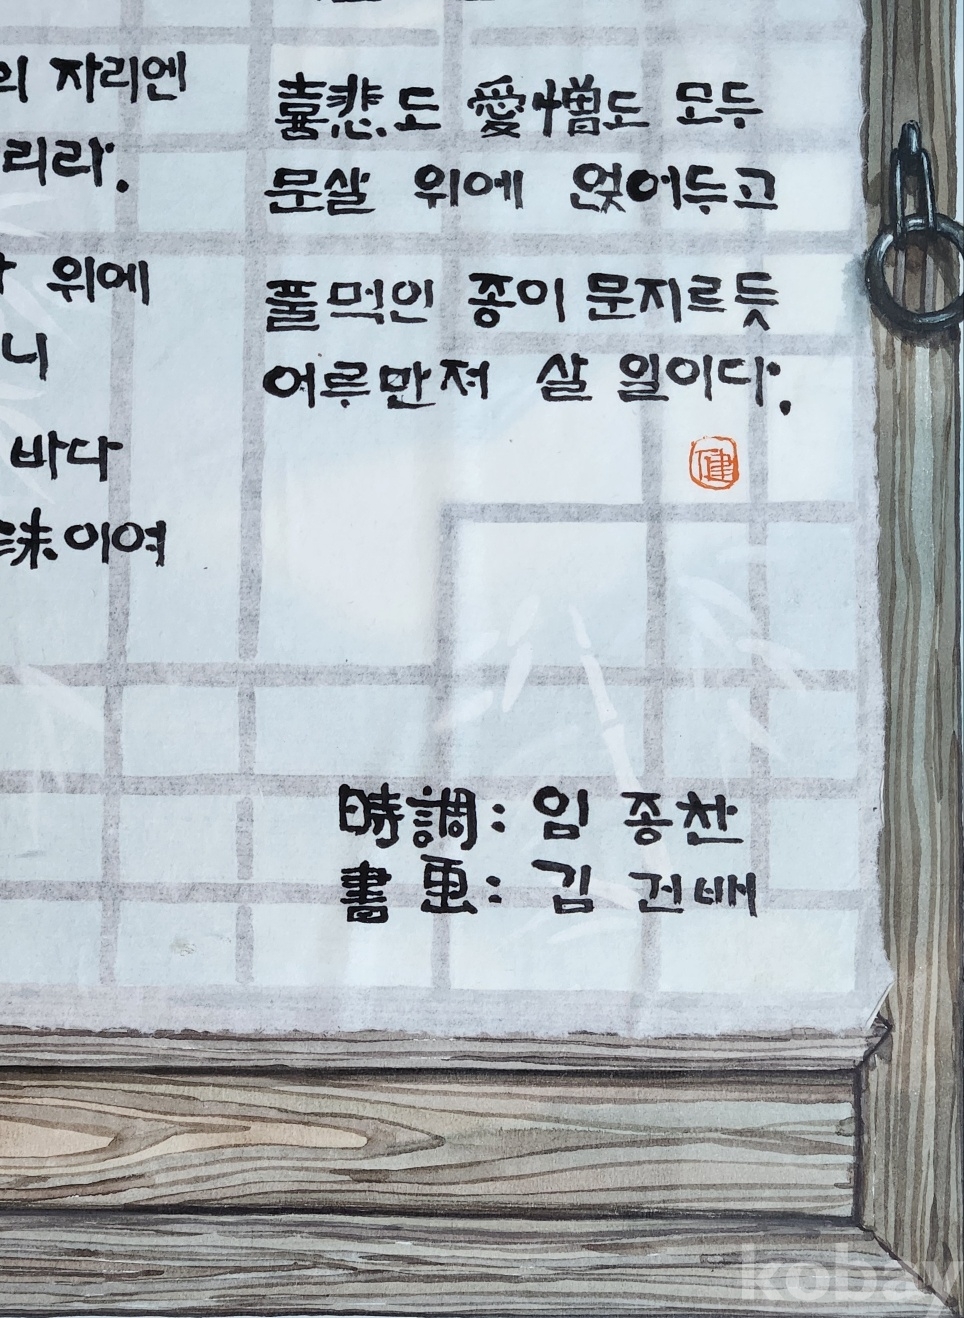 의 자리엔
리라.
위에
니
바다
味이여
喜悲도 愛憎도 모두
문살 위에 얹어두고
풀먹인 종이 문지르듯
어루만져 살 일이다.
健
時調: 임 종찬
書畫: 김 건배
kobay